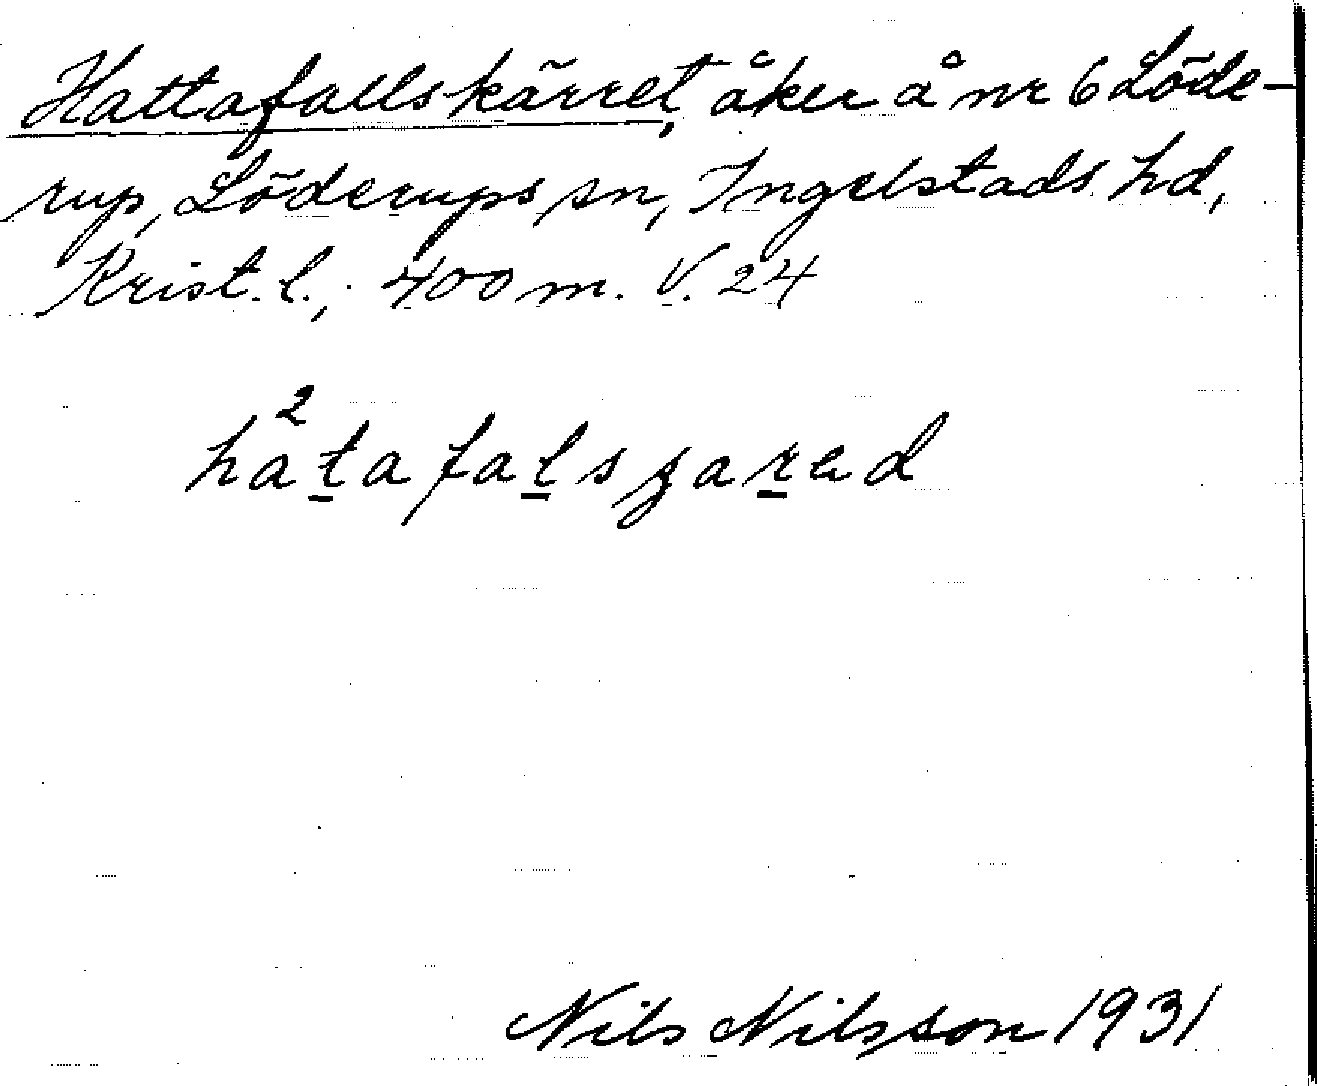 Hattafallskärret, åker å nr 6 Löde-
rup, Löderups sn, Ingelstads hd,
Krist. l., 400 m. V. 24
Nils Nilsson 1931